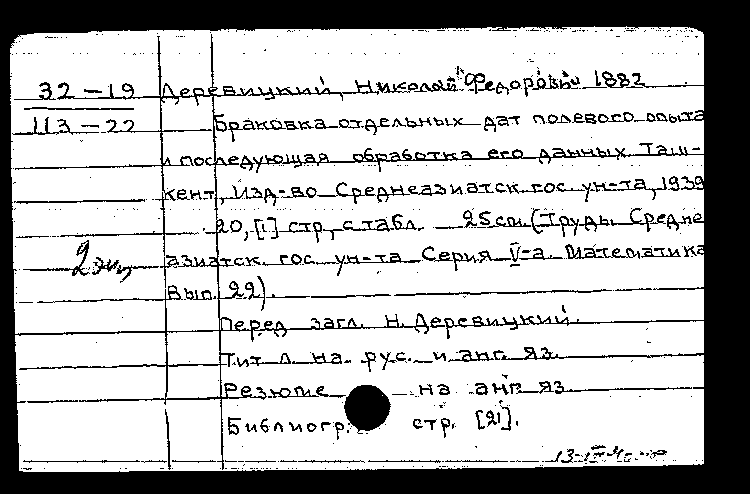 32-19 Деревицкий, Николай Федорович 1882
113-22 Браковка отдельных дат полевого опыта
и последующая обработка его данных. Таш-
кент, Изд-во Среднеазиатск. гос. ун-та, 1939
20, [1] стр., с табл. 25 см. (Труды Средне
2 экз азиатск. гос. ун-та Серия V-а. Математика
Вып. 22).
Перед загл. Н. Деревицкий.
Тит. л. на рус. и анг. яз.
Резюме на анг. яз.
Библиогр. стр. [21].